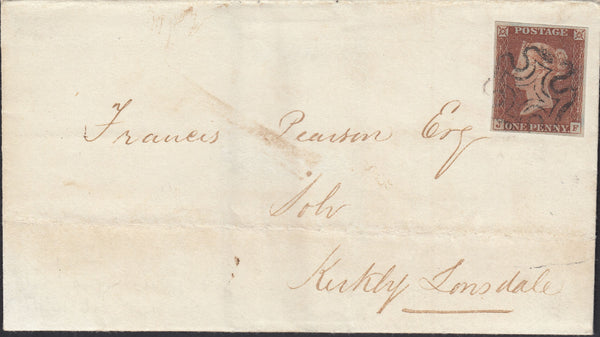 POSTAGE
J ONE PENNY F
Francis Pearson Esq
Solr
Kirkby Lonsdale